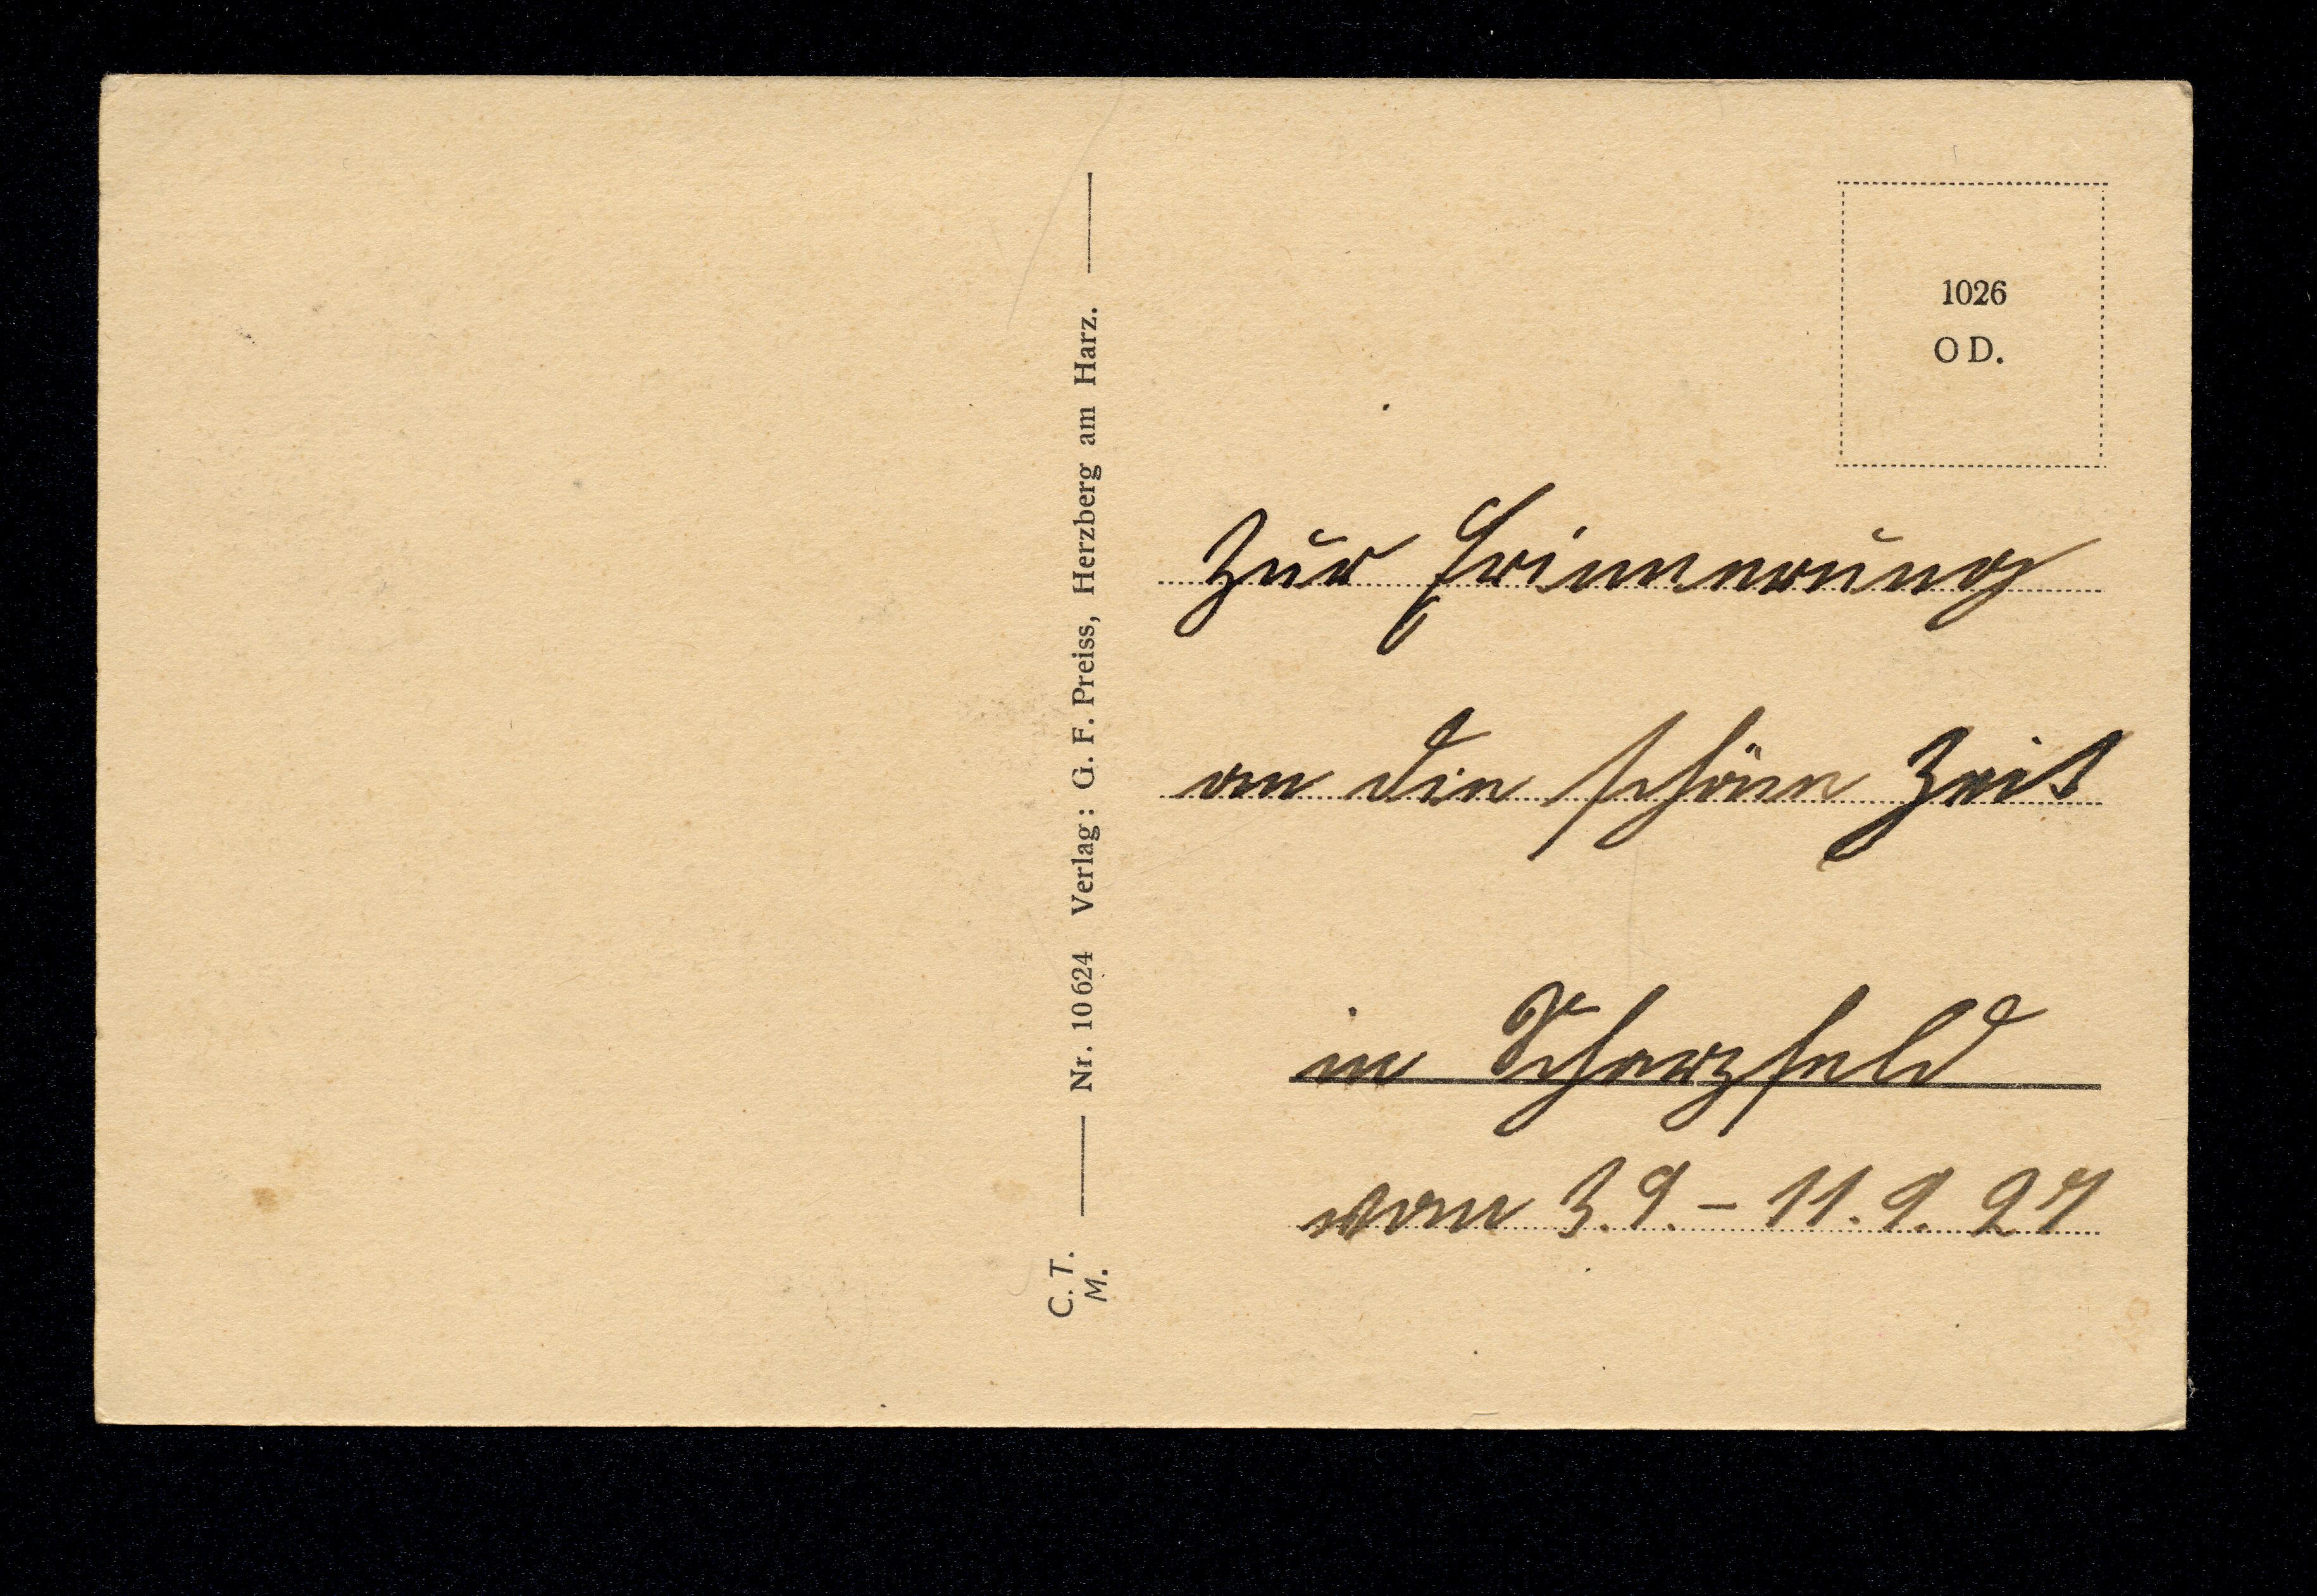 1026
OD.
C. T.
M.
Nr. 10624 Verlag: G. F. Preiss, Herzberg am Harz.
Zur Erinnerung
an die schöne Zeit
in Scharzfeld
vom 3.9. – 11.9. 27